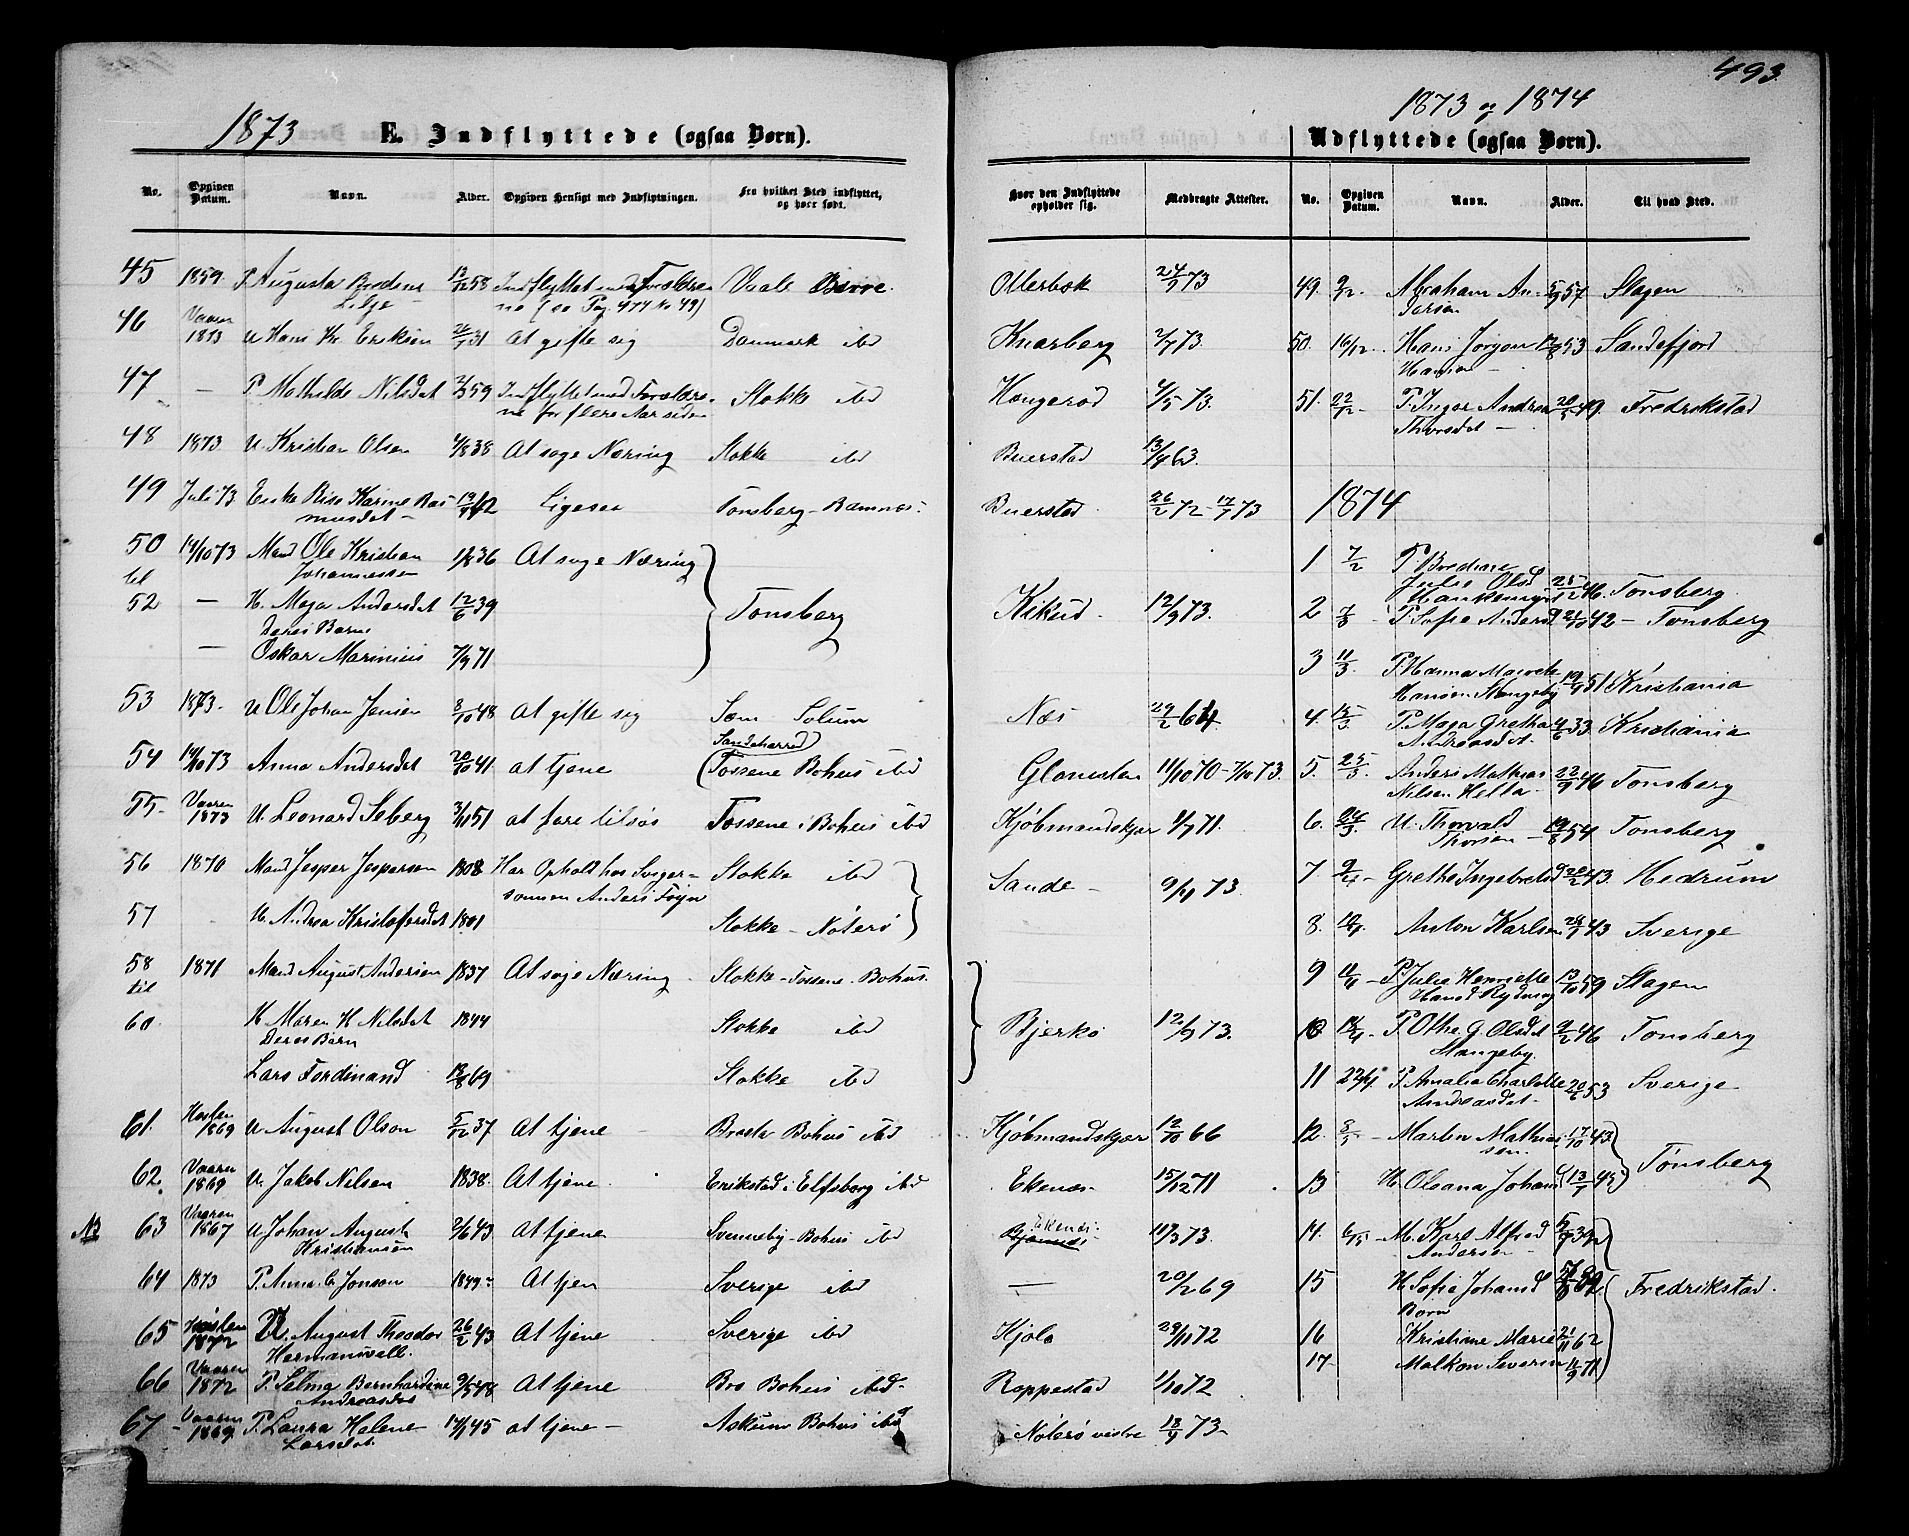 493.
1873 E. Indflyttede (ogsaa Børn).
1873 og 1874
Udflyttede (ogsaa Børn).
No. Opgiven Datum. Navn. Alder. Opgiven Hensigt med Indflytningen. Fra hvilket Sted indflyttet, og hvor født.
Hvor den Indflyttede opholder sig. Medbragte Attester. No. Opgiven Datum. Navn. Alder. Til hvad Sted.
45 1859. P. Augusta 13/12 58 Indflyttet med Forældre-
ne (se Pag. 477 No 49) Vaale Borre
46 Vaaren 1873 U Hans Kr. Eriksen 31 At gifte sig Danmark ibd
47 — P. Mathilde Nilsdat 59 Indflyttet med Forældre-
ne for flere Aar siden Stokke ibd
48 1873 U. Kristian Olsen 4/8 38 At søge Næring Stokke ibd
49 Juli 73 Enke Karine Ras
musdat — Ligesaa Tønsberg - Ramnæs.
50 14/10 73 Mand Ole Kristian
Johannessen 36 At søge Næring
til
52 — H. Maja Andersdat 12/6 39 Tønsberg
Deres Barn
— Oskar Marinius 7/9 71
53 1873. U Ole Johan Jensen 8/10 48 At gifte sig Sem Solum
54 14/10 73 Anna Andersdat 20/10 41. at tjene Sandeherred
(Tossene Bohus ibd
55. Vaaren 1873 U. Leonard Seberg 3/11 51 at fare tilsøs Tossene i Bohus ibd
56 1870 Mand Jesper Jespersen 1808 Har Ophold hos Sviger-
sønnen Anders Føyn Stokke ibd
57 H. Andrea Kristofersdat 1801 Stokke - Nøterø
58 1871 Mand August Andersen 1837 At søge Næring Stokke - Tossene. Bohus.
til
60 H. Maren H Nilsdat 1844 Stokke ibd
Deres Barn
Lars Ferdinand 18/8 69 Stokke ibd
61. Høsten 1869 U August Olson 5/12 37 At tjene Bohus ibd
62. Vaaren 1869 U. Jakob Nilsen 1838. At tjene Erikstad i Elfsborg ibd
63 Vaaren 1867 U Johan August
Kristiansen 2/6 43 At tjene Svenneby - Bohus ibd
64 1873 P. Anna C Jonson 1849 At tjen Sverige ibd
65 Høsten 1872 U. August Theodor
Hermansvall. 26/2 43 At tjene Sverige ibd
66 Vaaren 1872 P. Selma Bernhardine
Andreasdat 9/5 48 At tjene Bro Bohus ibd
67 Vaaren 1869. P. Laura Helene
Larsdat 14/1 45 at tjene — Askum Bohus ibd
Ollerbok 24/9 73
Knarberg 2/7 73.
Hængerød 4/5 73.
Buerstad 13/4 63
Buerstad 26/2 72 - 17/7 73
Kikud. 12/9 73.
Næs 29/2 64
11/10 70 - 7/10 73.
Kjøbmandskjær 1/7 71.
Sande - 9/9 73.
Bjerkø 12/9 73.
Kjøbmandskjær 12/10 66
Ekenæs. 15/12 71
Ekenæs. 11/3 73.
— 20/2 69
Kjole 29/11 72
Roppestad 1/10 72
Nøterø vestre 18/9 73.
49. 9/12. Abraham An-
dersen 57 Slagen
50. 16/12. Hans Jørgen
Hansen — 12/8 53 Sandefjord
51. 22/12 - P. Inger Andrea
Thorsdat — 49. Fredrikstad
1874
1 7/2 P. Bredine
Julie Olsd
25/12 46. Tønsberg.
2 7/3 - P. Sofie Andersd 24/10 42 - Tønsberg
3 11/3 P. Hanna
Hansen Stangeby 51 Kristiania
4. 15/3 P. Maja Grethe
Andreasdat. 4/6 33 Kristiania
5. 25/3. Anders Mathias
Nilsen Hella 22/9 46 Tønsberg
6. 24/3 U. Thorvald
Thorsen 19/8 54 Tønsberg
7. 9/4 - Grethe Ingebretsd 20/2 43. Hedrum
8. Anton Karlsen 43 Sverige
9 11/4 - P. Julie Henriette
Hansd Rydning 13/10 59 Slagen
10 P. Othe. G. Olsdat
Stangeby. 9/2 46 Tønsberg
11 22/4 P. Amalia Charlotte
Andreasdat. 53 Sverige
12. 8/5 - Martin Mathias
sen. 17/10 43 Tønsberg
13 H. Oleana Johans 13/7 45
14. 6/5 - M. Karl Alfred
Andersen 5/9 39
15 H Sofie Johansd Fredrikstad.
Børn
16 Kristine Marie 21/11 62
17. Malkon Severin 71